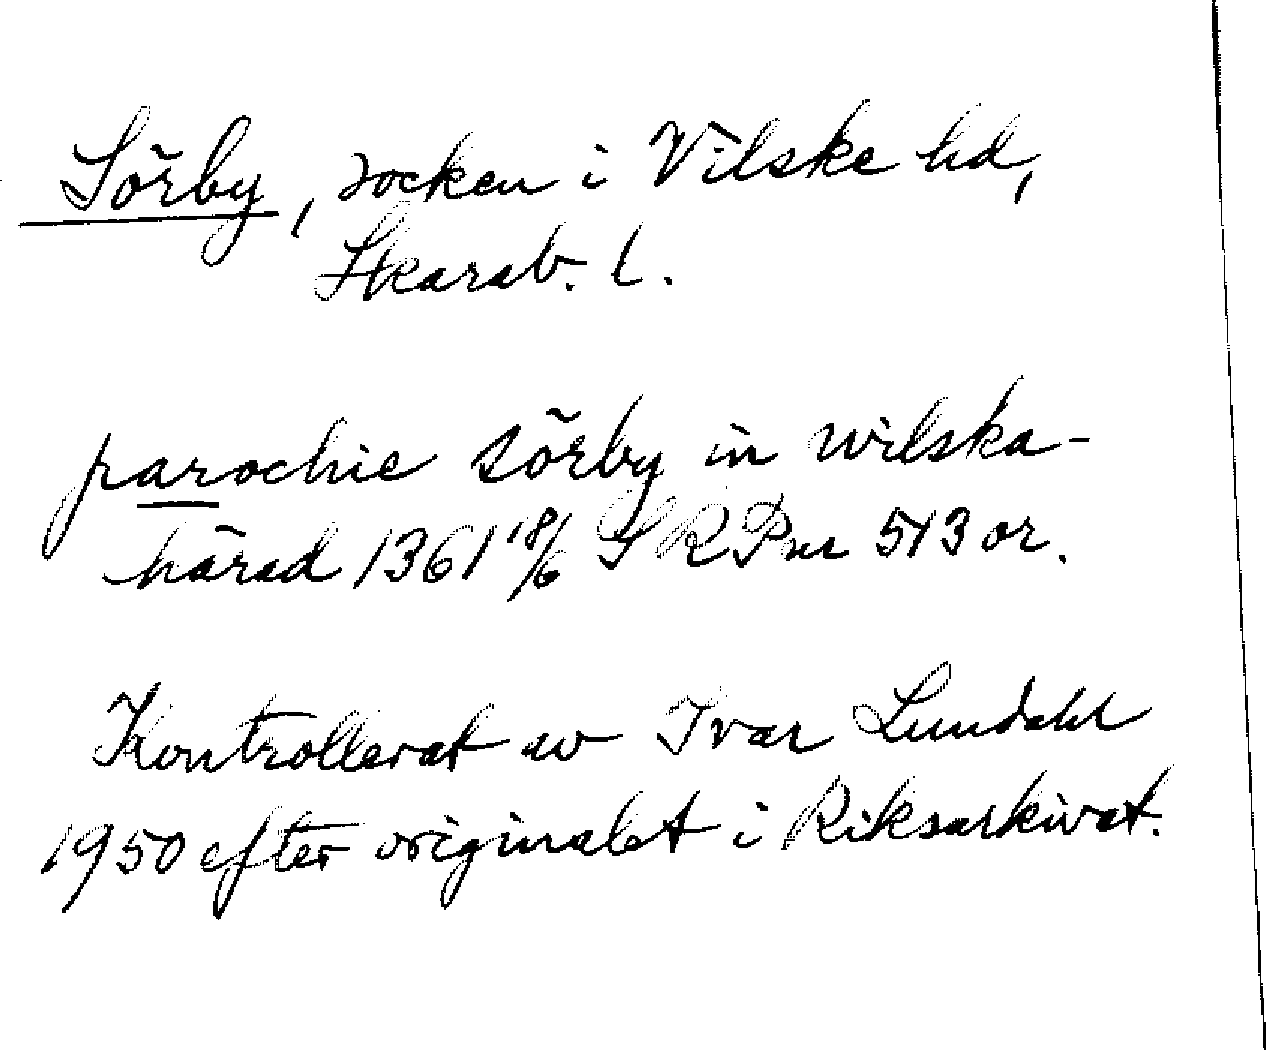 Sörby, socken i Vilske hd,
Skarab. l.
parochie sörby in wilska-
härad 1361 18/6 SRP nr 513 or.
Kontrollerat av Ivar Lundahl
1950 efter originalet i Riksarkivet.